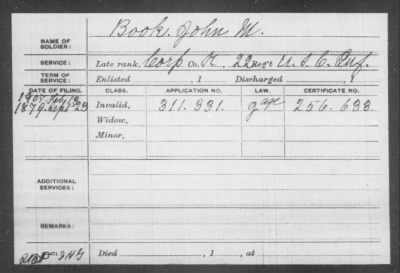 NAME OF SOLDIER: Book, John M.
SERVICE: Late rank, Corp Co. K, 22 Reg't U.S.C. Inf.
TERM OF SERVICE: Enlisted , 1 Discharged , 1
DATE OF FILING. CLASS. APPLICATION NO. LAW. CERTIFICATE NO.
1907 Feb 13
1879 Sept 23 Invalid, 311.331. 256.633.
Widow,
Minor,
ADDITIONAL SERVICES:
REMARKS:
Died , 1 , at